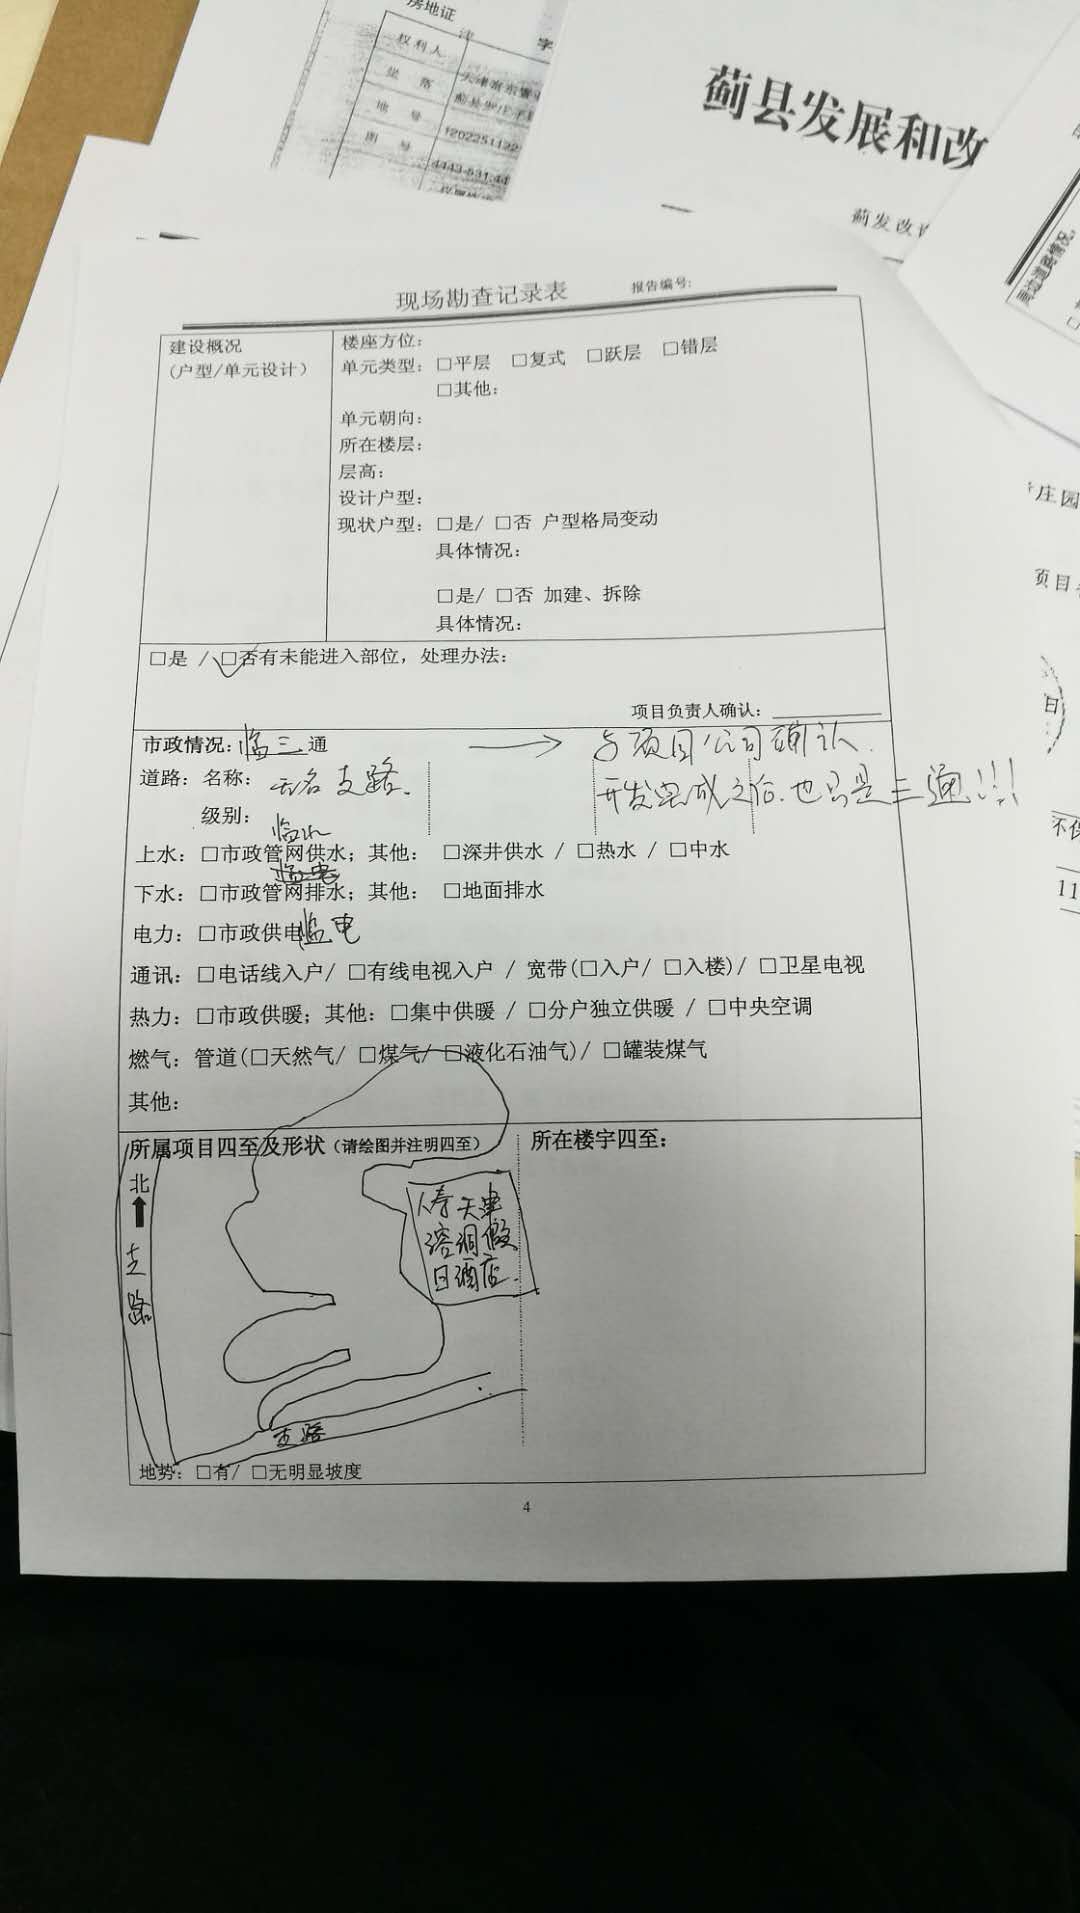 房地证
津 字
权利人
坐落
地号
120225112
图号
蓟县发展和改
蓟发改许
周边道路情况
庄园
项目
日
不保
11
现场勘查记录表 报告编号:
建设概况
(户型/单元设计)
楼座方位:
单元类型: □平层 □复式 □跃层 □错层
□其他:
单元朝向:
所在楼层:
层高:
设计户型:
现状户型: □是/ □否 户型格局变动
具体情况:
□是/ □否 加建、拆除
具体情况:
□是 / □否有未能进入部位，处理办法:
项目负责人确认:
市政情况: 临三通 → 与项目公司确认.
道路: 名称: 无名支路. 开发完成之后.也只是三通!!!
级别:
临水
上水: □市政管网供水; 其他: □深井供水 / □热水 / □中水
临电
下水: □市政管网排水; 其他: □地面排水
电力: □市政供电 临电
通讯: □电话线入户/ □有线电视入户 / 宽带(□入户/ □入楼)/ □卫星电视
热力: □市政供暖; 其他: □集中供暖 / □分户独立供暖 / □中央空调
燃气: 管道(□天然气/ □煤气/ □液化石油气)/ □罐装煤气
其他:
所属项目四至及形状(请绘图并注明四至) 所在楼宇四至:
北
支路
人寿天津
溶洞假
日酒店.
支路
地势: □有/ □无明显坡度
4